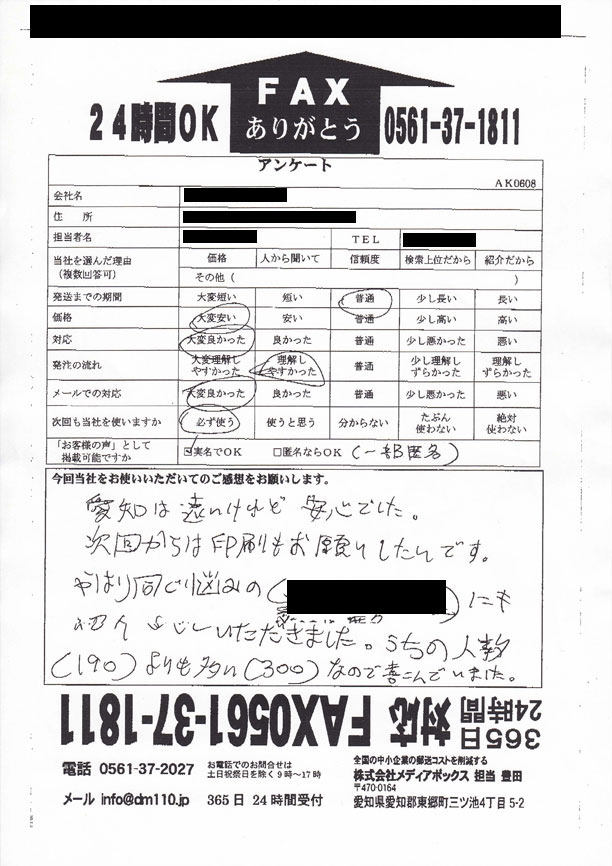 FAX
ありがとう
24時間OK
0561-37-1811
アンケート
AK0608
会社名
住 所
担当者名 TEL
当社を選んだ理由(複数回答可) 価格 人から聞いて 信頼度 検索上位だから 紹介だから
その他( )
発送までの期間 大変短い 短い 普通 少し長い 長い
価格 大変安い 安い 普通 少し高い 高い
対応 大変良かった 良かった 普通 少し悪かった 悪い
発注の流れ 大変理解しやすかった 理解しやすかった 普通 少し理解しずらかった 理解しずらかった
メールでの対応 大変良かった 良かった 普通 少し悪かった 悪い
次回も当社を使いますか 必ず使う 使うと思う 分からない たぶん使わない 絶対使わない
「お客様の声」として掲載可能ですか ☑実名でOK □匿名ならOK (一部匿名)
今回当社をお使いいただいてのご感想をお願いします。
愛知は遠いけれど 安心でした。
次回からは印刷もお願いしたいです。
やはり同じ悩みの( )にも
いただきました。うちの人数
(190)よりも多い(300)なので喜こんでいました。
365日 24時間 対応 FAX0561-37-1811
電話 0561-37-2027 お電話でのお問合せは 土日祝祭日を除く9時〜17時
メール info@dm110.jp 365日 24時間受付
全国の中小企業の郵送コストを削減する
株式会社メディアボックス 担当 豊田
〒470-0164
愛知県愛知郡東郷町三ツ池4丁目5-2